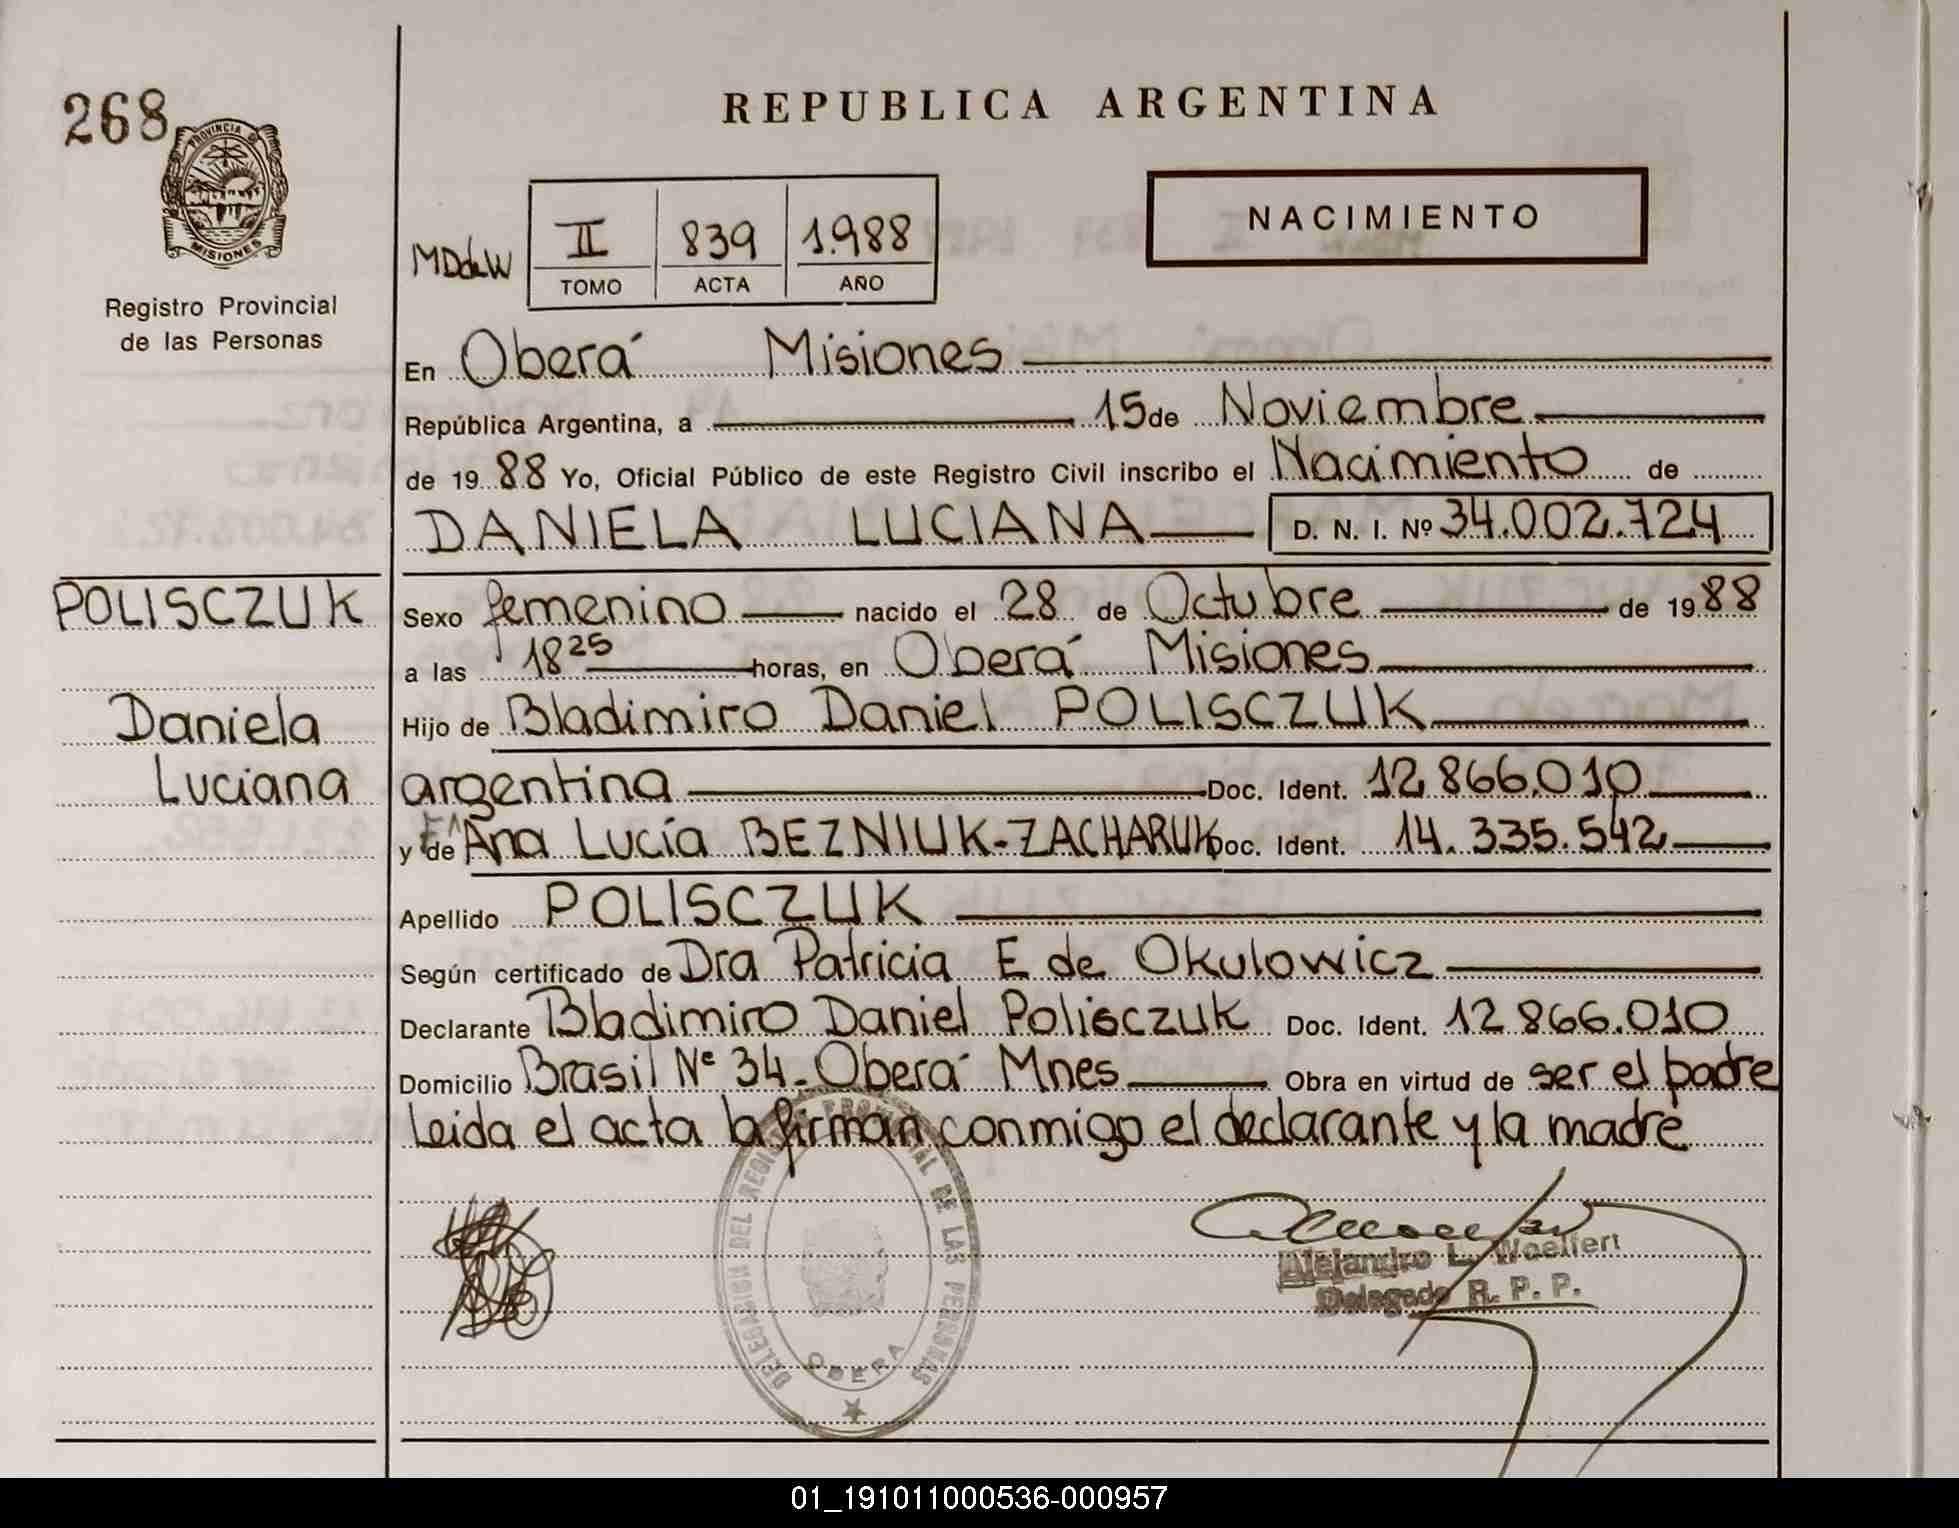 268
REPUBLICA ARGENTINA
PROVINCIA DE
MISIONES
Registro Provincial
de las Personas
MDdeW
II 839 1.988
TOMO ACTA AÑO
NACIMIENTO
En Oberá Misiones
República Argentina, a 15 de Noviembre
de 19 88 Yo, Oficial Público de este Registro Civil inscribo el Nacimiento de
DANIELA LUCIANA D. N. I. Nº 34.002.724
POLISCZUK
Daniela
Luciana
Sexo femenino nacido el 28 de Octubre de 19 88
a las 18 25 horas, en Oberá Misiones
Hijo de Bladimiro Daniel POLISCZUK
argentina Doc. Ident. 12.866.010
y de Ana Lucía BEZNIUK-ZACHARUK Doc. Ident. 14.335.542
Apellido POLISCZUK
Según certificado de Dra Patricia E de Okulowicz
Declarante Bladimiro Daniel Polisczuk Doc. Ident. 12866.010
Domicilio Brasil Nº 34. Oberá Mnes Obra en virtud de ser el padre
Leida el acta la firman conmigo el declarante y la madre
DELEGACION DEL REGISTRO PROVINCIAL DE LAS PERSONAS
OBERA
Alejandro L. Woelfert
Delegado R. P. P.
01_191011000536-000957